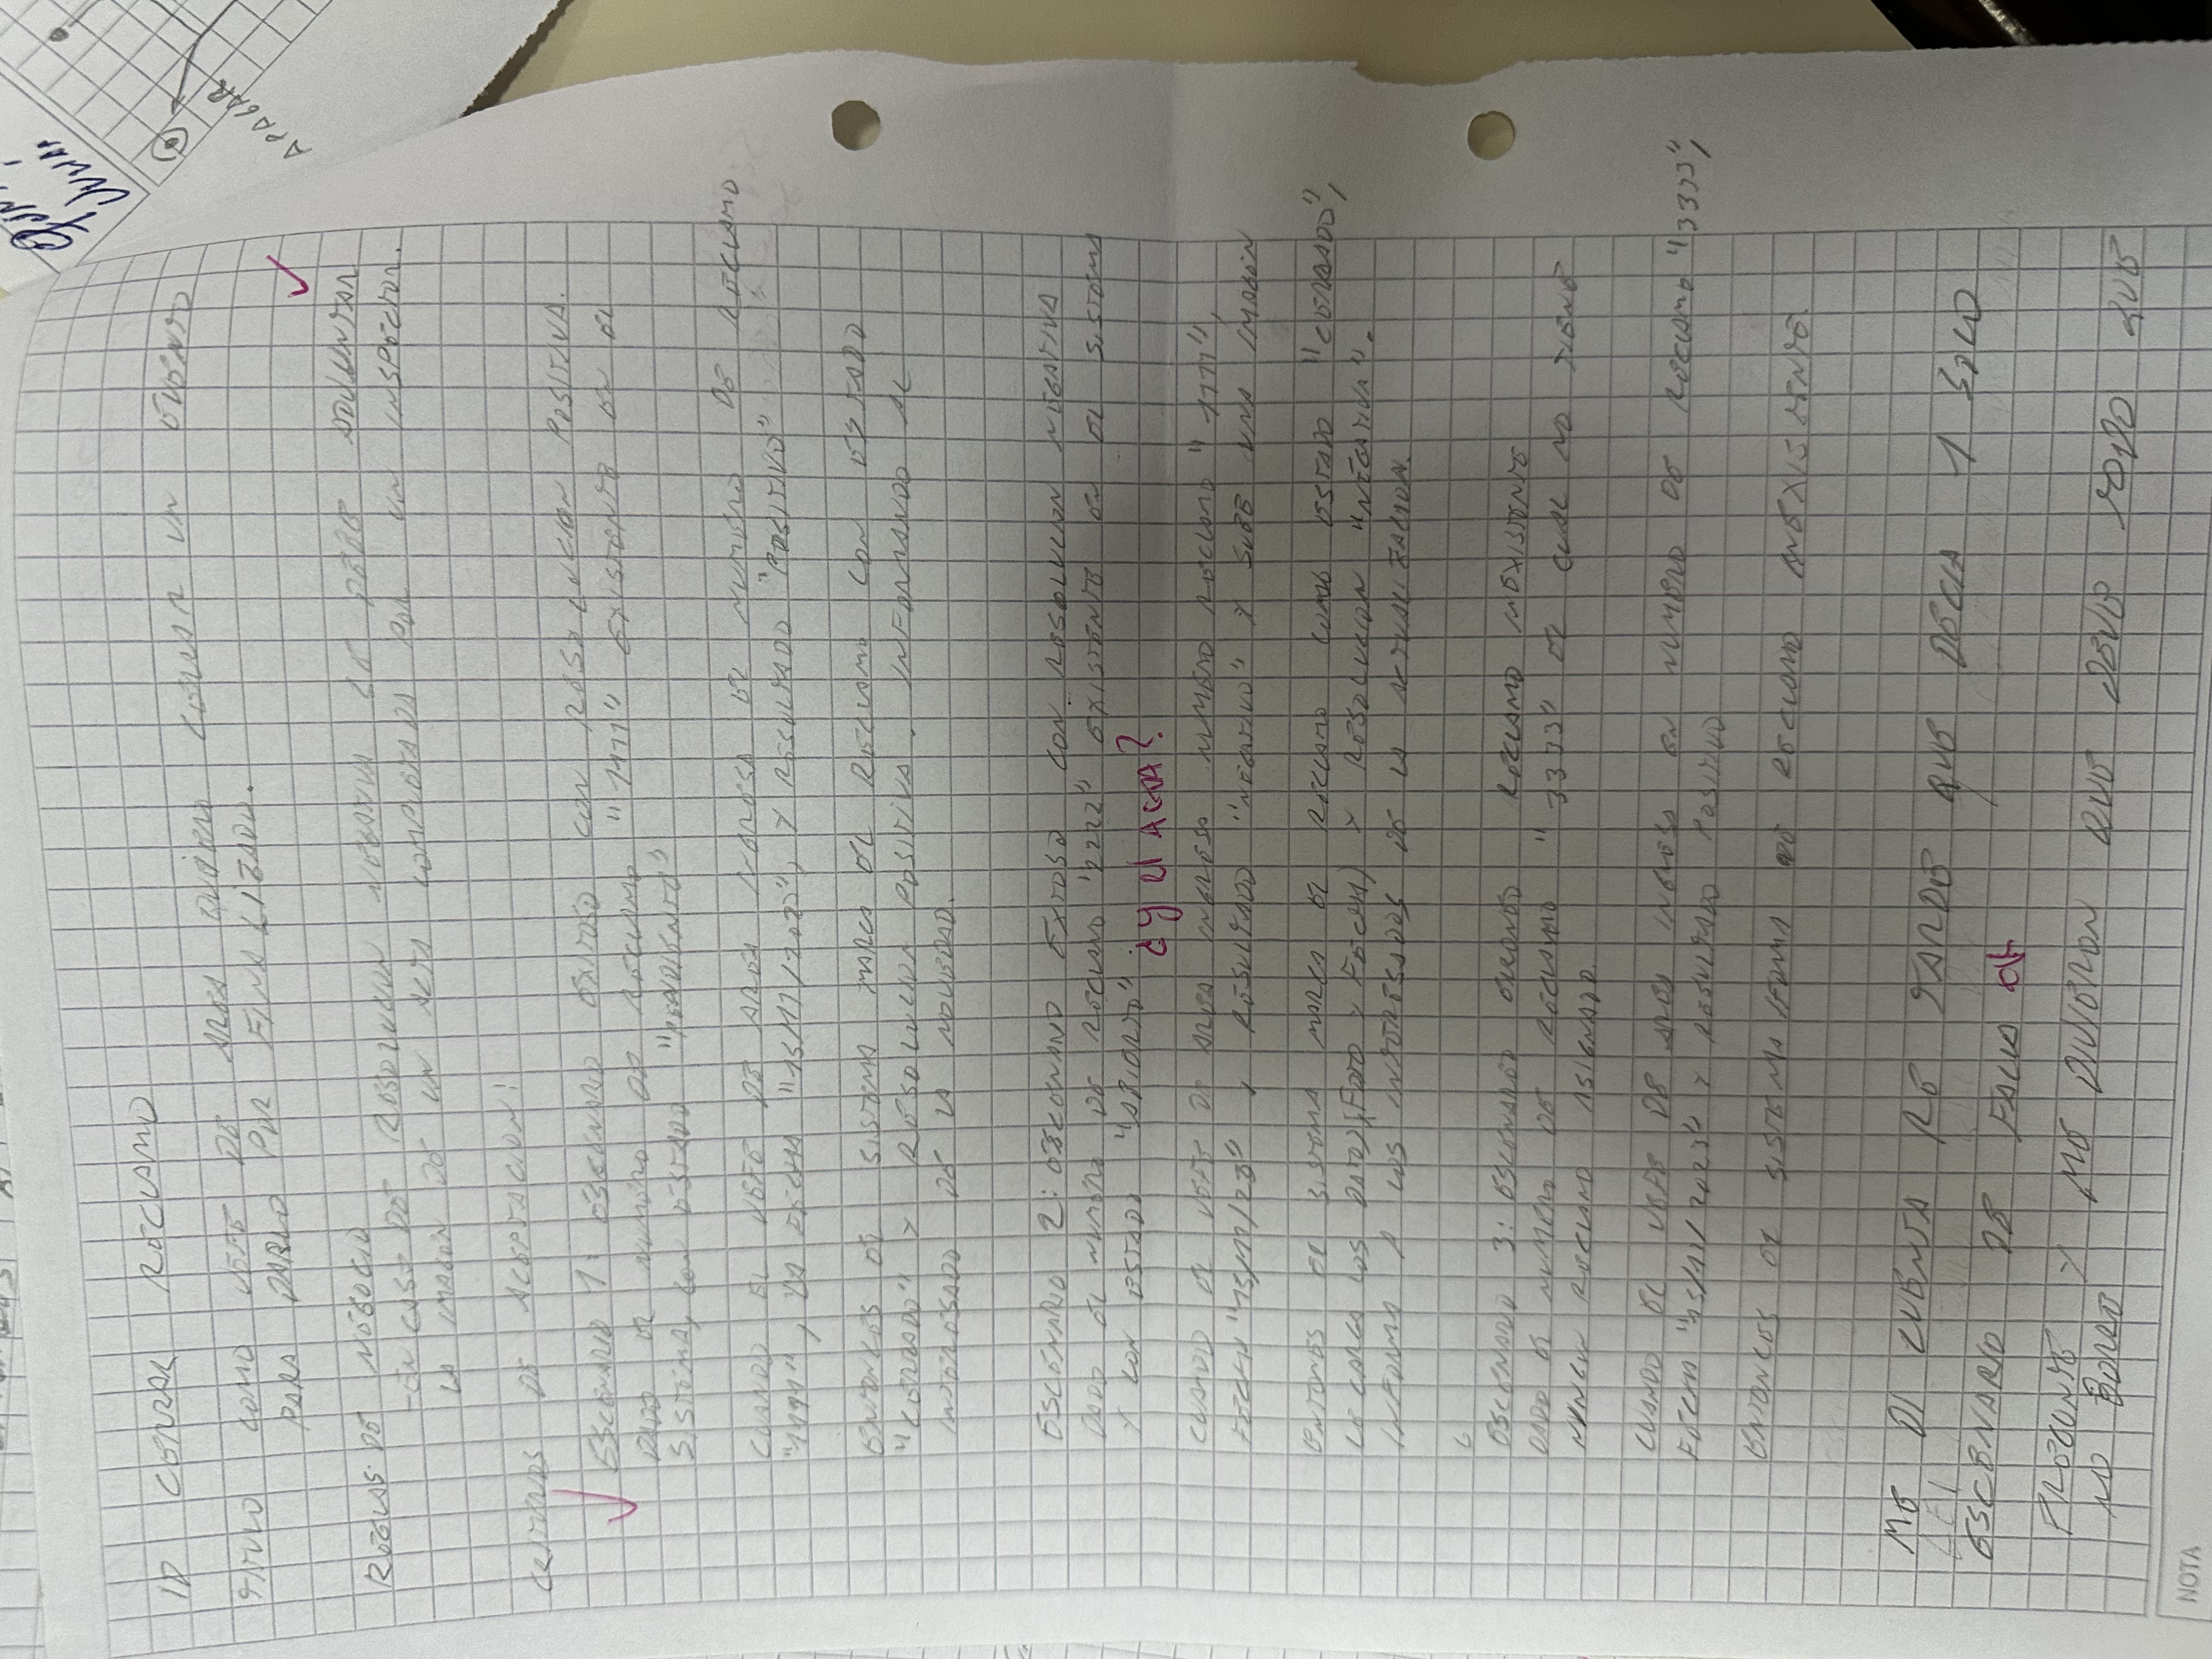 ID CERRAR RECLAMO
TITULO COMO JEFE DE AREA QUIERO CERRAR UN EVENTO
PARA DARLO POR FINALIZADO.
REGLAS DE NEGOCIO
-EN CASO DE RESOLUCION NEGATIVA SE DEBE ADJUNTAR
LA IMAGEN DE UN ACTA COMPLETADA POR UN INSPECTOR.
CRITERIOS DE ACEPTACION:
ESCENARIO 1: ESCENARIO EXITOSO CON RESOLUCION POSITIVA.
DADO EL NUMERO DE RECLAMO "1111" EXISTENTE EN EL
SISTEMA, CON ESTADO "PENDIENTE"
CUANDO EL JEFE DE AREA INGRESA EL NUMERO DE RECLAMO
"1111", LA FECHA "15/11/2023", Y RESULTADO "POSITIVO"
ENTONCES EL SISTEMA MARCA EL RECLAMO CON ESTADO
"CERRADO" Y RESOLUCION POSITIVA. INFORMANDO AL
INTERESADO DE LA NOVEDAD.
ESCENARIO 2: ESCENARIO EXITOSO CON RESOLUCION NEGATIVA
DADO EL NUMERO DE RECLAMO "2222" EXISTENTE EN EL SISTEMA
Y CON ESTADO "ABIERTO"
¿y el ACTA?
CUANDO EL JEFE DE AREA INGRESA NUMERO RECLAMO "1111",
FECHA "15/11/23", RESULTADO "NEGATIVO" Y SUBE UNA IMAGEN
ENTONES EL SISTEMA MARCA EL RECLAMO COMO ESTADO "CERRADO",
LE CARGA LOS DATOS (FOTO Y FECHA) Y RESOLUCION "NEGATIVA".
INFORMA A LOS INTERESADOS DE LA ACTUALIZACION.
ESCENARIO 3: ESCENARIO ERRONEO RECLAMO INEXISTENTE
DADO EL NUMERO DE RECLAMO "3333" EL CUAL NO TIENE
NINGUN RECLAMO ASIGNADO.
CUANDO EL JEFE DE AREA INGRESA EN NUMERO DE RECLAMO "3333",
FECHA "15/11/2023" Y RESULTADO POSITIVO
ENTONCES EL SISTEMA IFORMA DE RECLAMO INEXISTENTE.
ME DI CUENTA RE TARDE QUE DECIA 1 SOLO
ESCENARIO DE FALLA OK
PREGUNTE Y ME DIJERON QUE DEJE TODO QUE
NO BORRE
NOTA
APAGAR